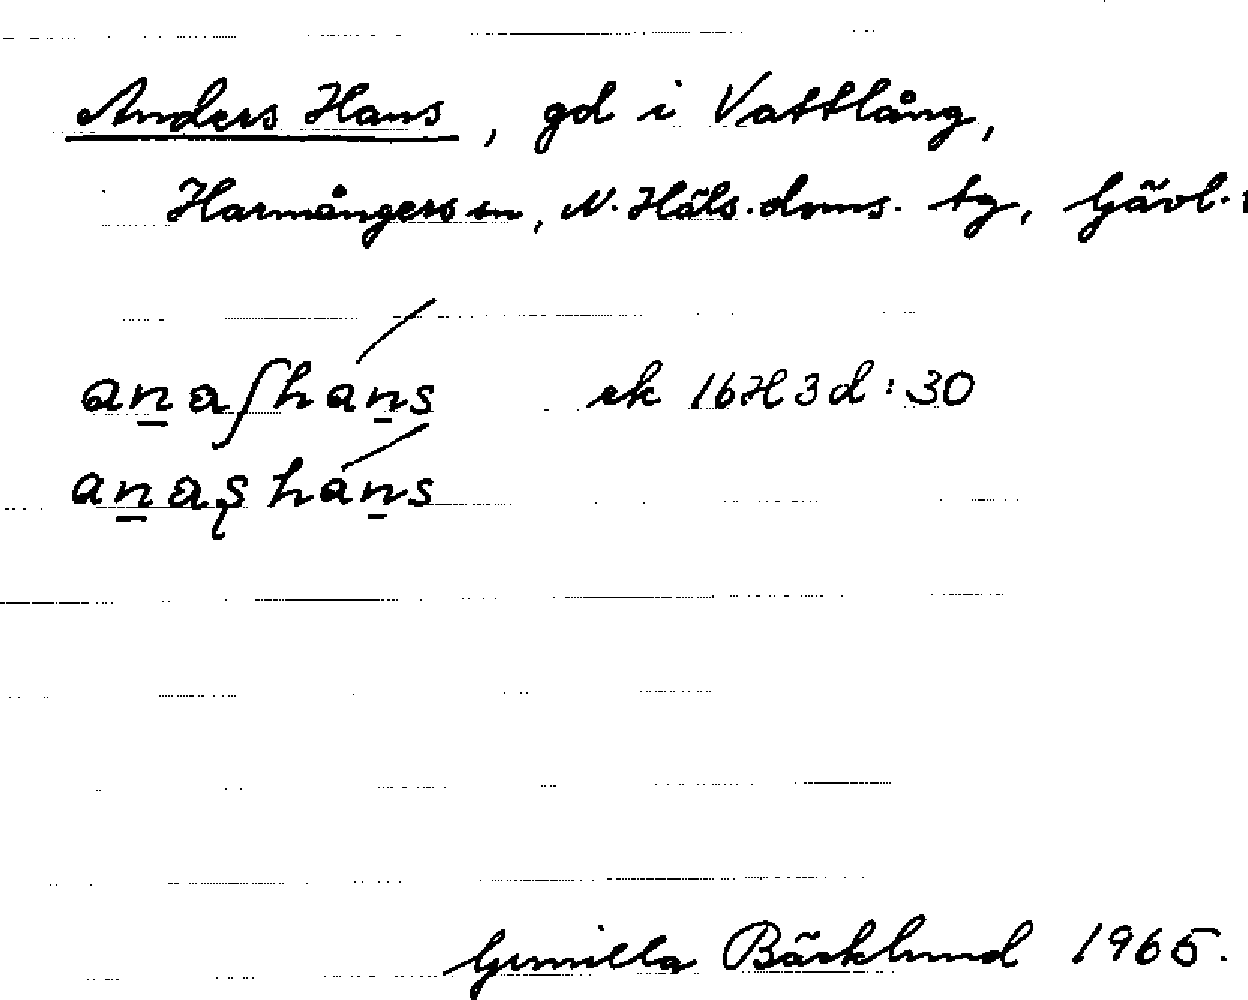 Anders Hans, gd i Vattlång,
Harmångers sn, N. Häls. doms. tg, Gävl. l
anaʃháns ek 16H3d:30
anaʂ háns
Gunilla Bäcklund 1965.